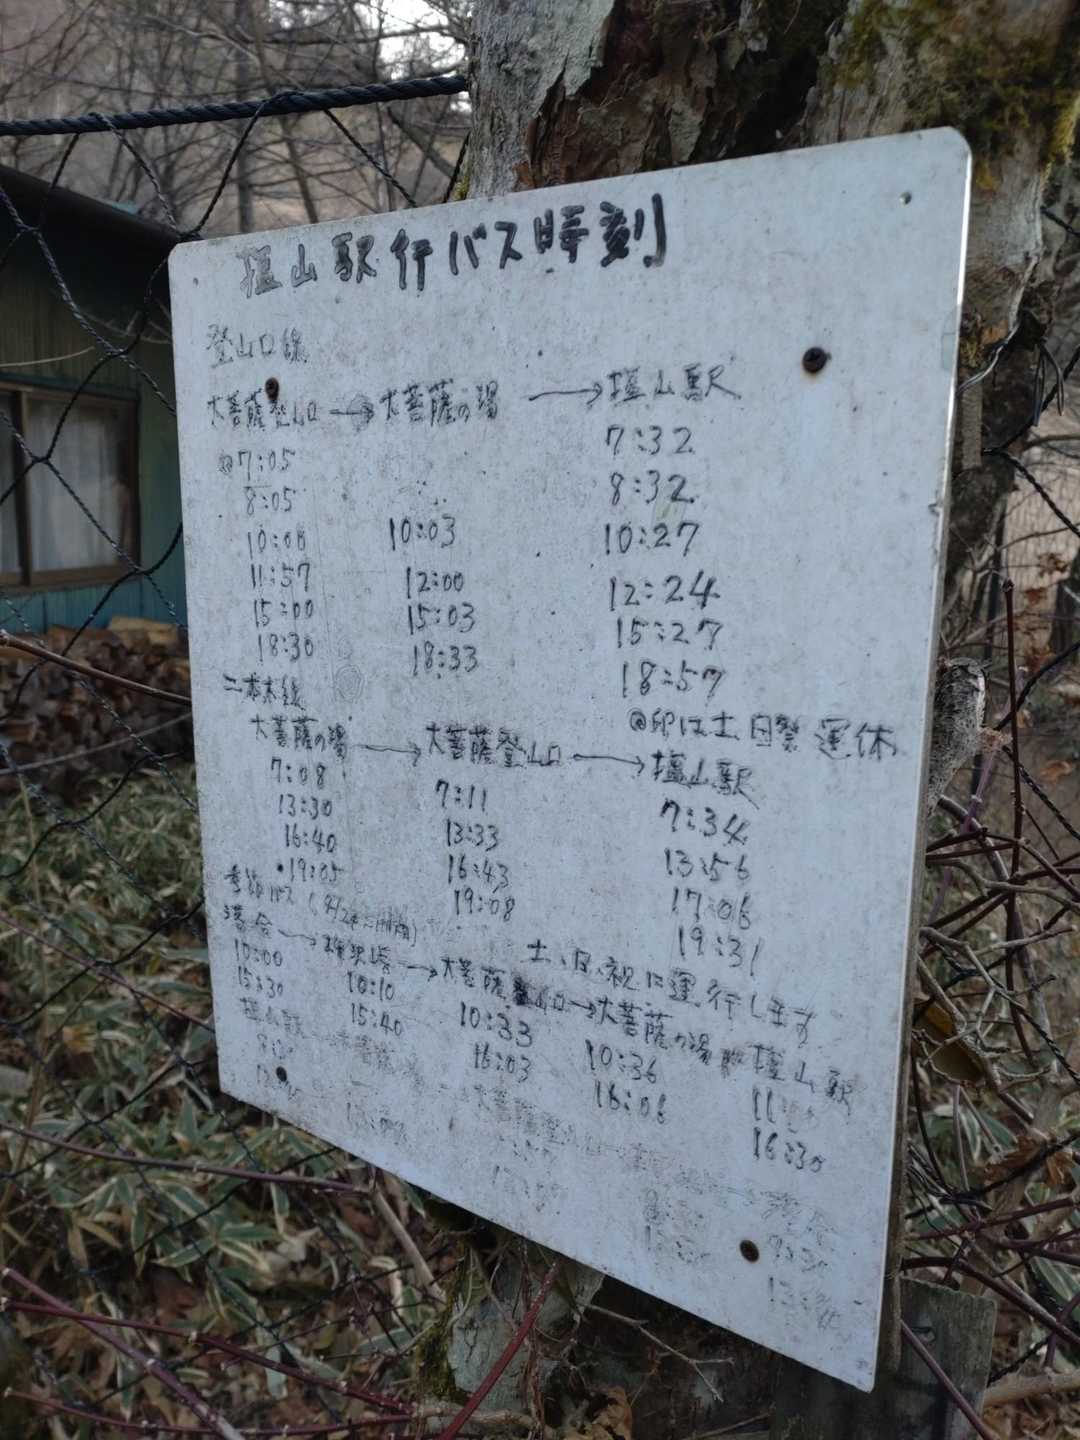 塩山駅行バス時刻
登山口線
大菩薩登山口→大菩薩の湯→塩山駅
@7:05 7:32
8:05 8:32
10:00 10:03 10:27
11:57 12:00 12:24
15:00 15:03 15:27
18:30 18:33 18:57
@印は土、日祭運休
二本木線
大菩薩の湯→大菩薩登山口→塩山駅
7:08 7:11 7:34
13:30 13:33 13:56
16:40 16:43 17:06
19:05 19:08 19:31
季節バス
土、日、祝に運行します
落合→柳沢峠→大菩薩登山口→大菩薩の湯 塩山駅
10:00 10:10 10:33 10:36
15:30 15:40 16:03 16:06 16:30
塩山駅